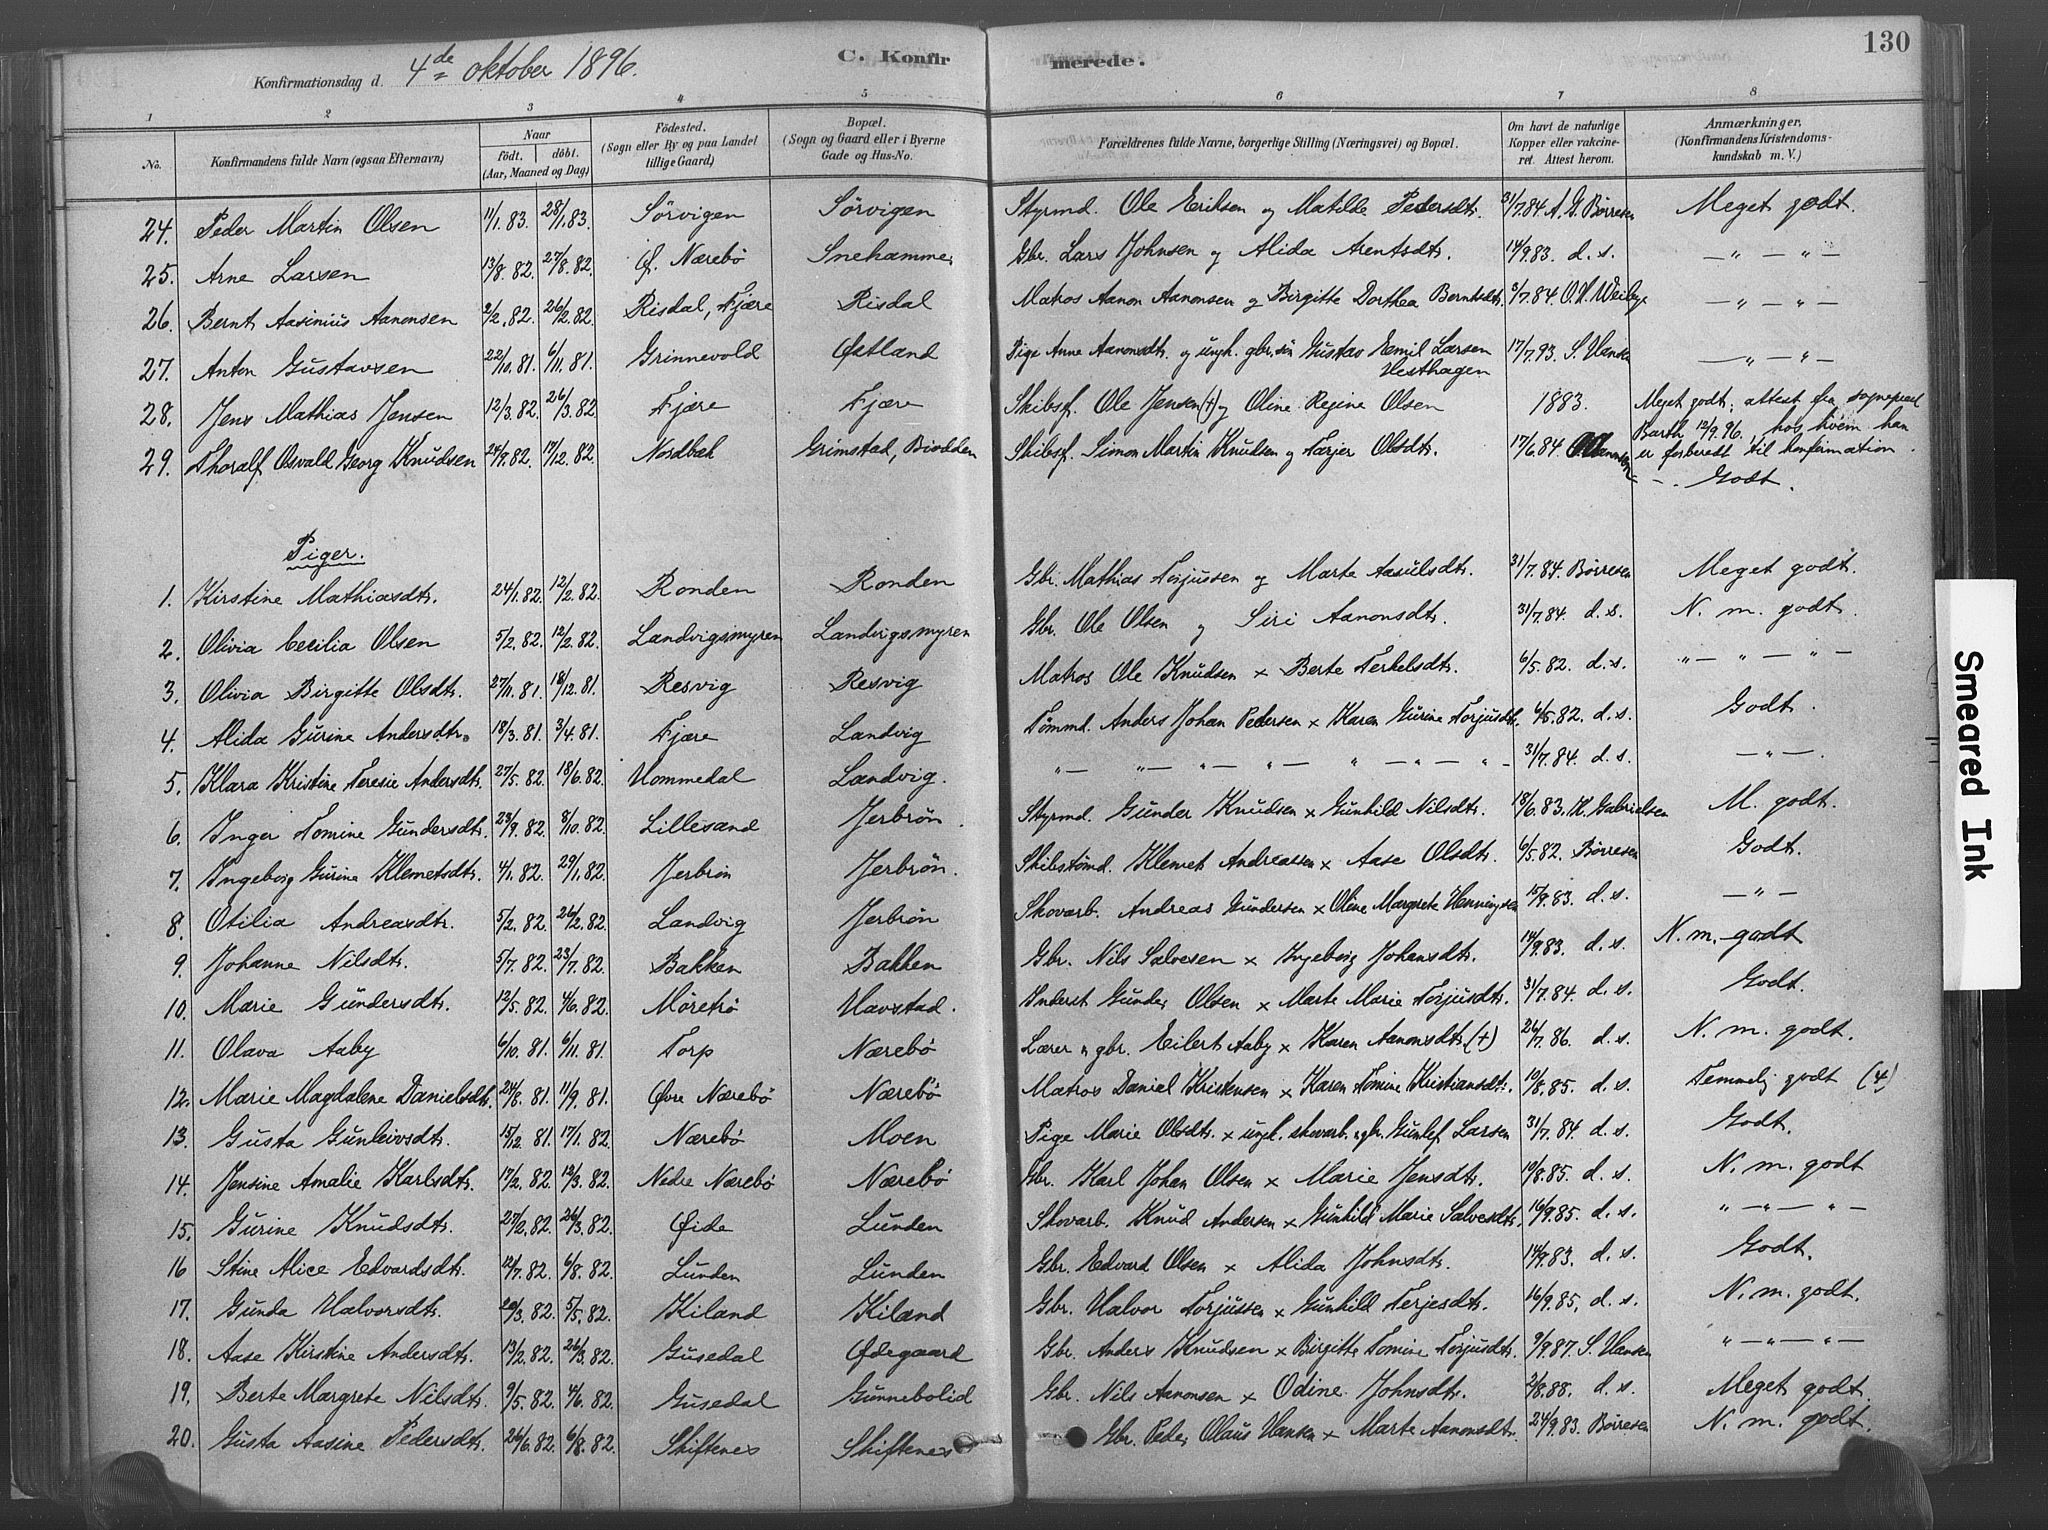 130
Konfirmationsdag d. 4de oktober 1896.
C. Konfirmerede.
1 2 3 4 5 6 7 8
No.
Konfirmandens fulde Navn (ogsaa Efternavn)
Naar
født. døbt.
(Aar, Maaned og Dag)
Fødested.
(Sogn eller By og paa Landet
tillige Gaard)
Bopæl.
(Sogn og Gaard eller i Byerne
Gade og Hus-No.
Forældrenes fulde Navne, borgerlige Stilling (Næringsvei) og Bopæl.
Om havt de naturlige
Kopper eller vakcine-
ret. Attest herom.
Anmærkninger,
(Konfirmandens Kristendoms-
kundskab m. V.)
24. Peder Martin Olsen 11/1.83. 28/1.83. Sørvigen Sørvigen Styrmd. Ole Eriksen og Matilde Pedersdtr. 31/7.84 A. G. Børresen Meget godt.
25. Arne Larsen 13/8.82. 27/8.82. Ø. Nærebø Snehammer Gbr. Lars Johnsen og Alida Arentsdtr. 14/9.83. d. s. — " — " —
26. Bernt Aasinius Aanonsen 2/2.82. 26/2.82. Risdal, Fjære Risdal Matros Aanon Aanonsen og Birgitte Dorthea Berntsdtr. 3/7.84. O. H. Weibye — " — " —
27. Anton Gustavsen 22/10.81. 6/11.81. Grinnevold Østland Pige Anne Aanonsdtr. og ungk. gbr.søn Gustav Emil Larsen Vesthagen 17/7.93. S. Hansen — " — " —
28. Jens Mathias Jensen 12/3.82. 26/3.82 Fjære Fjære Skibsf. Ole Jensen (+) og Oline Regine Olsen 1883. Meget godt; attest fra sogneprest Barth 12/9.96., hos hvem han er forberedt til konfirmation.
29. Thoralf Osvald Georg Knudsen 24/9.82. 17/12.82. Nordbæk Grimstad, Biodden Skibsf. Simon Martin Knudsen og Tarjer Olsdtr. 17/6.84. Godt.
Piger.
1. Kirstine Mathiasdtr. 24/1.82. 12/2.82. Ronden Ronden Gbr. Mathias Torjussen og Marte Aasulsdtr. 31/7.84. Børresen Meget godt.
2. Olivia Cecilia Olsen 5/2.82. 12/2.82. Landvigsmyren Landvigsmyren Gbr. Ole Olsen og Siri Aanonsdtr. 31/7.84. d. s. N. m. godt.
3. Olivia Birgitte Olsdtr. 27/11.81. 18/12.81. Resvig Resvig Matros Ole Knudsen x Berte Terkelsdtr. 6/5.82. d. s. " — " — " —
4. Alida Gurine Andersdtr. 18/3.81. 3/4.81. Fjære Landvig Tømmd. Anders Johan Pedersen x Karen Gurine Torjusdtr. 6/5.82. d. s. Godt.
5. Klara Kristine Teresie Andersdtr. 27/5.82. 18/6.82. Hommedal Landvig. " — " — " — " — " — " — " — 31/7.84. d. s. — " —
6. Inger Tomine Gundersdtr. 23/9.82. 8/10.82. Lillesand Jerbrøn. Styrmd. Gunder Knudsen x Gunhild Nilsdtr. 18/6.83. H. Gabrielsen M. godt.
7. Ingeborg Gurine Klemetsdtr. 4/1.82. 29/1.82. Jerbrøn Jerbrøn. Skibstømd. Klemet Andreassen x Aase Olsdtr. 6/5.82. Børresen Godt.
8. Otilia Andreasdtr. 5/2.82. 26/2.82. Landvig Jerbrøn Skovarb. Andreas Gundersen x Oline Margrete Henningsen 15/9.83. d. s. — " —
9. Johanne Nilsdtr. 5/7.82. 23/7.82. Bakken Bakken Gbr. Nils Salvesen x Ingeborg Johansdtr. 14/9.83. d. s. N. m. godt
10. Marie Gundersdtr. 12/5.82. 4/6.82. Møretrø Havstad. Inderst Gunder Olsen x Marte Marie Torjusdtr. 31/7.84. d. s. Godt.
11. Olava Aaby 6/10.81. 6/11.81. Torp Nærebø Lærer og gbr. Eilert Aaby x Karen Aanonsdtr. (+) 26/7.86. d. s. N. m. godt.
12. Marie Magdalene Danielsdtr. 24/8.81. 11/9.81. Øvre Nærebø Nærebø Matros Daniel Kristensen x Karen Tomine Kristiansdtr. 10/8.85. d. s. Temmelig godt (4)
13. Gusta Gunleivsdtr. 15/12.81. 17/1.82. Nærebø Moen Pige Marie Olsdtr. x ungk. skovarb. og gbr. Gunlef Larsen 31/7.84. d. s. Godt.
14. Jensine Amalie Karlsdtr. 17/2.82. 12/3.82. Nedre Nærebø Nærebø Gbr. Karl Johan Olsen x Marie Jensdtr. 10/8.85. d. s. N. m. godt
15. Gurine Knudsdtr. 27/2.82. 26/3.82. Øide Lunden Skovarb. Knud Andersen x Gunhild Marie Salvesdtr. 16/9.85. d. s. " — " — " —
16 Stine Alice Edvardsdtr. 12/7.82. 6/8.82. Lunden Lunden Gbr. Edvard Olsen x Alida Johnsdtr. 14/9.83. d. s. Godt.
17. Gunda Halvorsdtr. 20/3.82. 5/5.82. Kiland Kiland Gbr. Halvor Torjussen x Gunhild Terjesdtr. 16/9.85. d. s. N. m. godt.
18. Aase Kirstine Andersdtr. 13/2.82. 26/3.82. Gusedal Ødegaard Gbr. Anders Knudsen x Birgitte Tomine Torjusdtr. 9/9.87. S. Hansen " — " — " —
19. Berte Margrete Nilsdtr. 9/5.82. 4/6.82. Gusedal Gunnebolid Gbr. Nils Aanonsen x Odine Johnsdtr. 2/8.88. d. s. Meget godt.
20. Gusta Aasine Pedersdtr. 26/6.82. 6/8.82. Skiftenes Skiftenes Gbr. Peder Olaus Hansen x Marte Aanonsdtr. 24/9.83. Børresen N. m. godt.
Smeared Ink